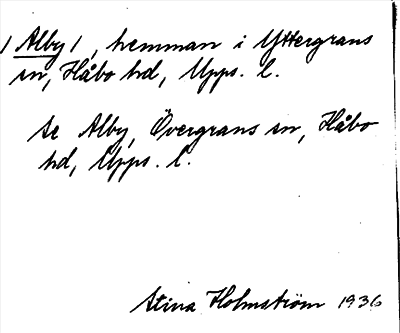 /Alby/, hemman i Yttergrans
sn, Håbo hd, Upps. l.
Se Alby, Övergrans sn, Håbo
hd, Upps. l.
Stina Holmström 1936